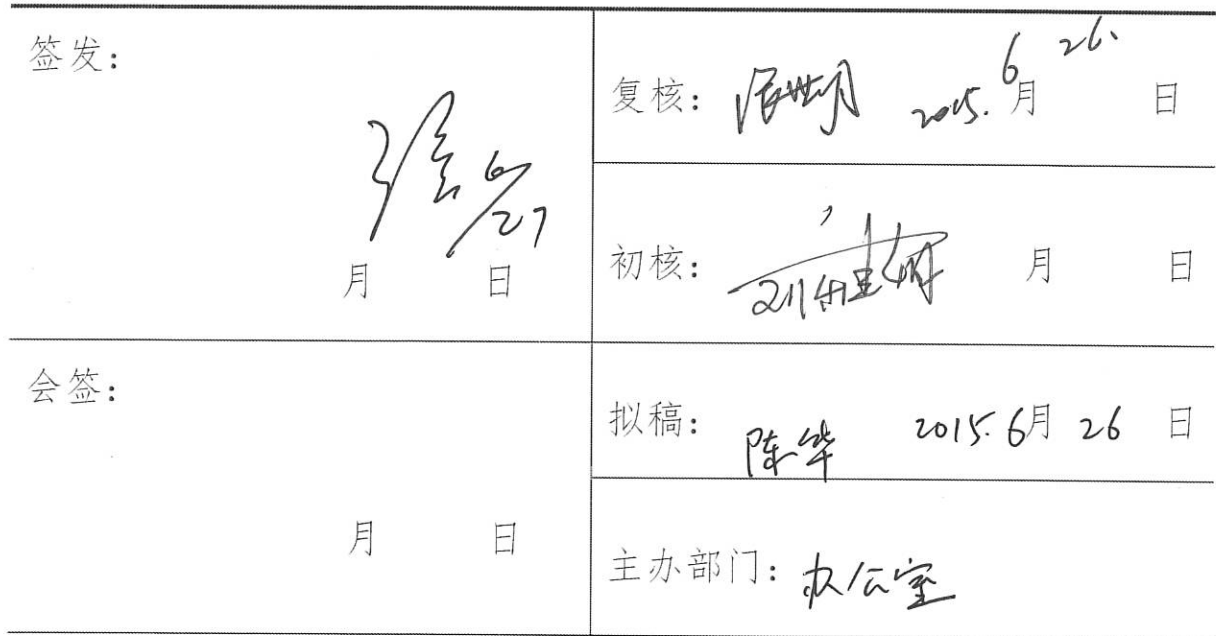 签发：
6/27
月 日
复核： 2015. 6月 26. 日
初核： 月 日
会签：
月 日
拟稿： 陈华 2015. 6月 26 日
主办部门： 办公室